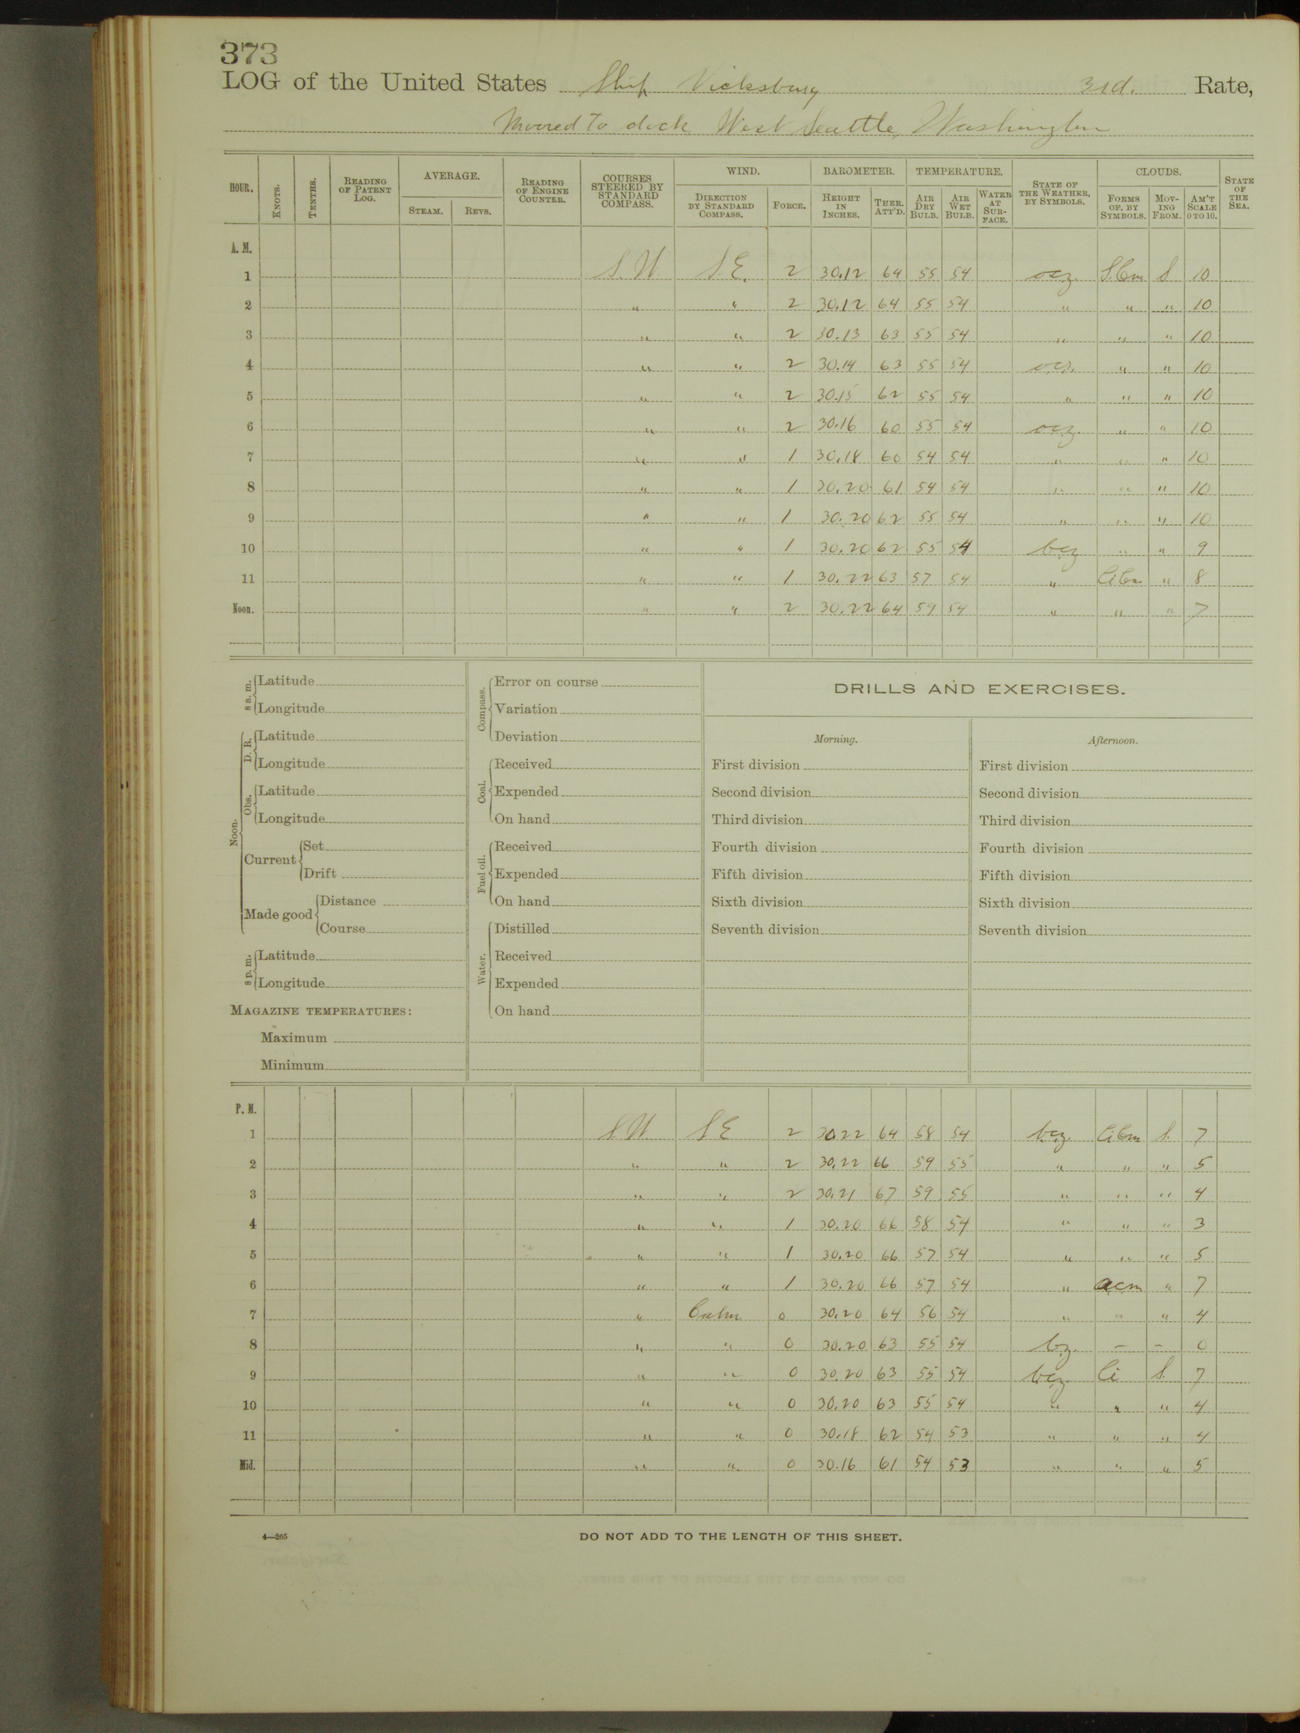 373
LOG of the United States Ship Vicksburg 3rd. Rate,
Moored to dock West Seattle, Washington
HOUR. KNOTS. TENTHS. READING OF PATENT LOG. AVERAGE. STEAM. REVS. READING OF ENGINE COUNTER. COURSES STEERED BY STANDARD COMPASS. WIND. DIRECTION BY STANDARD COMPASS. FORCE. BAROMETER. HEIGHT IN INCHES. THER. ATT'D. TEMPERATURE. AIR DRY BULB. AIR WET BULB. WATER AT SURFACE. STATE OF THE WEATHER, BY SYMBOLS. CLOUDS. FORMS OF, BY SYMBOLS. MOVING FROM. AM'T SCALE 0 TO 10. STATE OF THE SEA.
A. M.
1 S W S E. 2 30.12 64 55 54 ocz S.Cm S 10
2 " " 2 30.12 64 55 54 " " " 10
3 " " 2 30.13 63 55 54 " " " 10
4 " " 2 30.14 63 55 54 ocz. " " 10
5 " " 2 30.15 62 55 54 " " " 10
6 " " 2 30.16 60 55 54 ocz " " 10
7 " " 1 30.18 60 54 54 " " " 10
8 " " 1 30.20 61 54 54 " " " 10
9 " " 1 30.20 62 55 54 " " " 10
10 " " 1 30.20 62 55 54 bcz " " 9
11 " " 1 30.22 63 57 54 " Ci.Cm " 8
Noon. " " 2 30.22 64 57 54 " " " 7
8 a. m. Latitude
Longitude
Noon. D. R. Latitude
Longitude
Obs. Latitude
Longitude
Current Set
Drift
Made good Distance
Course
8 p. m. Latitude
Longitude
MAGAZINE TEMPERATURES:
Maximum
Minimum
Compass. Error on course
Variation
Deviation
Coal. Received
Expended
On hand
Fuel oil. Received
Expended
On hand
Water. Distilled
Received
Expended
On hand
DRILLS AND EXERCISES.
Morning. Afternoon.
First division First division
Second division Second division
Third division Third division
Fourth division Fourth division
Fifth division Fifth division
Sixth division Sixth division
Seventh division Seventh division
P. M.
1 S W S E 2 30.22 64 58 54 bcz Ci.Cm S. 7
2 " " 2 30.22 66 59 55 " " " 5
3 " " 2 30.21 67 59 55 " " " 4
4 " " 1 30.20 66 58 54 " " " 3
5 " " 1 30.20 66 57 54 " " " 5
6 " " 1 30.20 66 57 54 " acm " 7
7 " Calm 0 30.20 64 56 54 " " " 4
8 " " 0 30.20 63 55 54 bz. – – 0
9 " " 0 30.20 63 55 54 bcz Ci S 7
10 " " 0 30.20 63 55 54 " " " 4
11 " " 0 30.18 62 54 53 " " " 4
Mid. " " 0 30.16 61 54 53 " " " 5
4—265 DO NOT ADD TO THE LENGTH OF THIS SHEET.